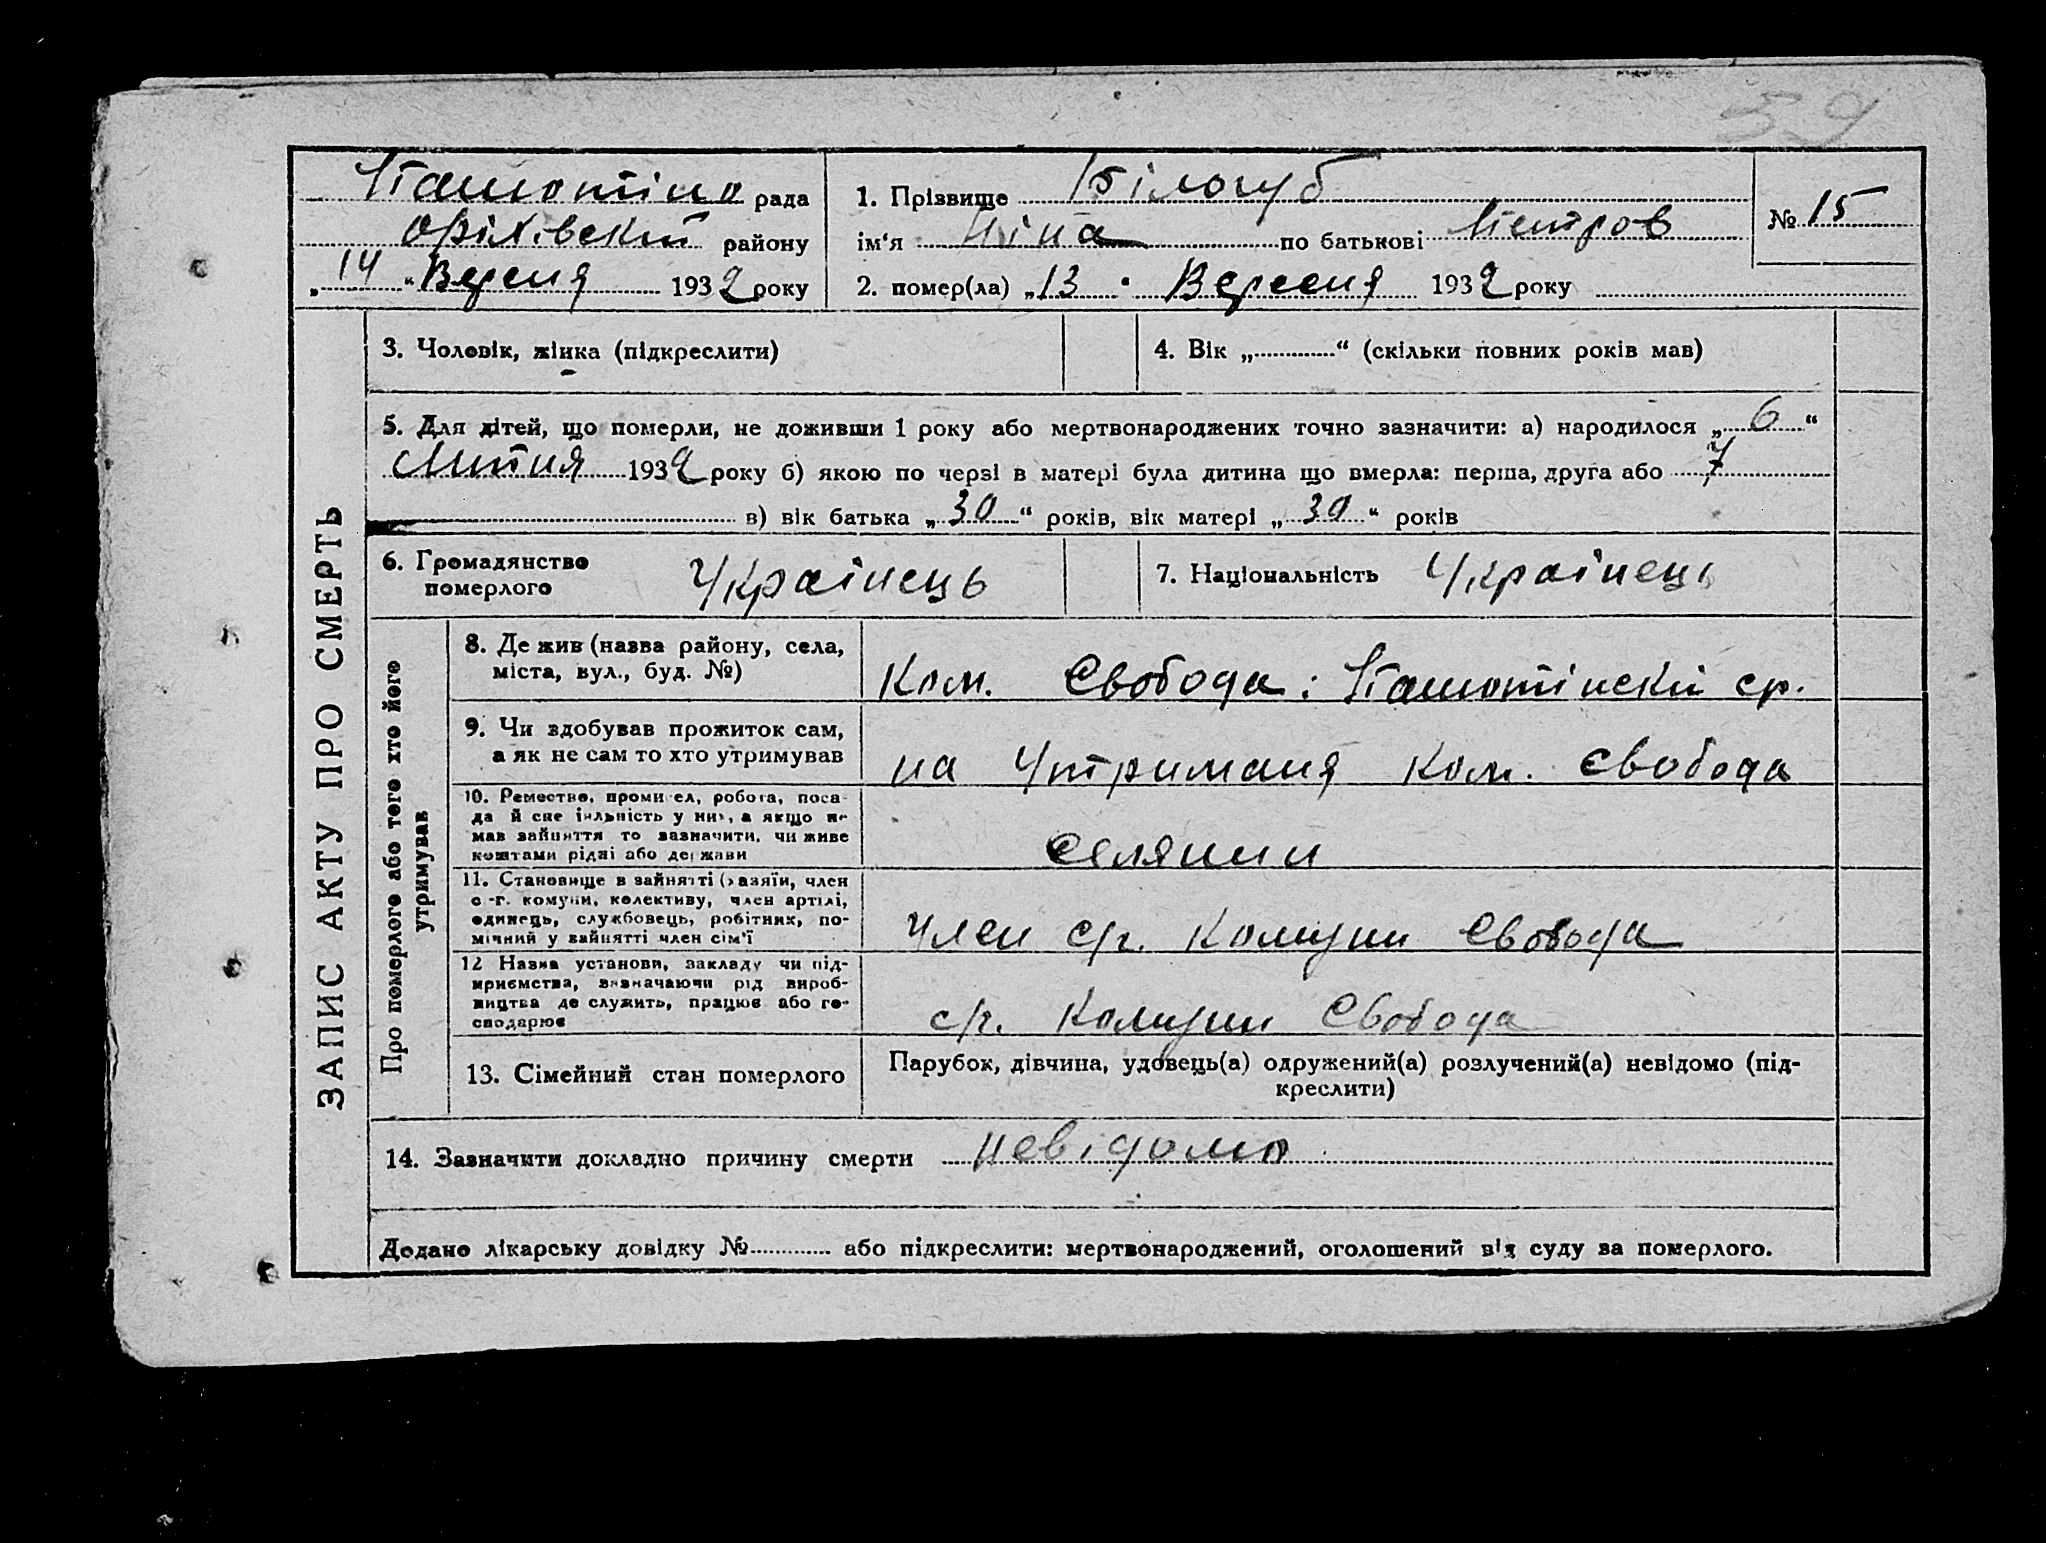 59
Пашотіно рада
Оріхівский району
„14“ Вересня 1932 року
1. Прізвище Білогуб
ім'я Ніна по батькові Петров
№ 15
2. помер(ла) „13“ Вересня 1932 року
ЗАПИС АКТУ ПРО СМЕРТЬ
3. Чоловік, жінка (підкреслити)
4. Вік „......“ (скільки повних років мав)
5. Для дітей, що померли, не доживши 1 року або мертвонароджених точно зазначити: а) народилося „6“
Липня 1932 року б) якою по черзі в матері була дитина що вмерла: перша, друга або 7
в) вік батька „30“ років, вік матері „30“ років
6. Громадянство
померлого
Українець
7. Національність Українець
Про померлого або того хто його
утримував
8. Де жив (назва району, села,
міста, вул., буд. №)
Ком. Свобода: Пашотінскій ср.
9. Чи здобував прожиток сам,
а як не сам то хто утримував
на Утриманя ком. Свобода
10. Ремество, промисел, робота, поса-
да й спеціяльність у них, а якщо не
мав зайняття то зазначити, чи живе
коштами рідні або держави
Селянин
11. Становище в зайнятті (хазяїн, член
с.-г. комуни, колективу, член артілі,
одинець, службовець, робітник, по-
мічний у зайнятті член сім'ї
Член с/г. Комуни Свобода
12 Назва установи, закладу чи під-
приємства, зазначаючи рід вироб-
ництва де служить, працює або го-
сподарює
с/г. Комуни Свобода
13. Сімейний стан померлого
Парубок, дівчина, удовець(а) одружений(а) розлучений(а) невідомо (під-
креслити)
14. Зазначити докладно причину смерти невідомо
Додано лікарську довідку №...... або підкреслити: мертвонароджений, оголошений від суду за померлого.